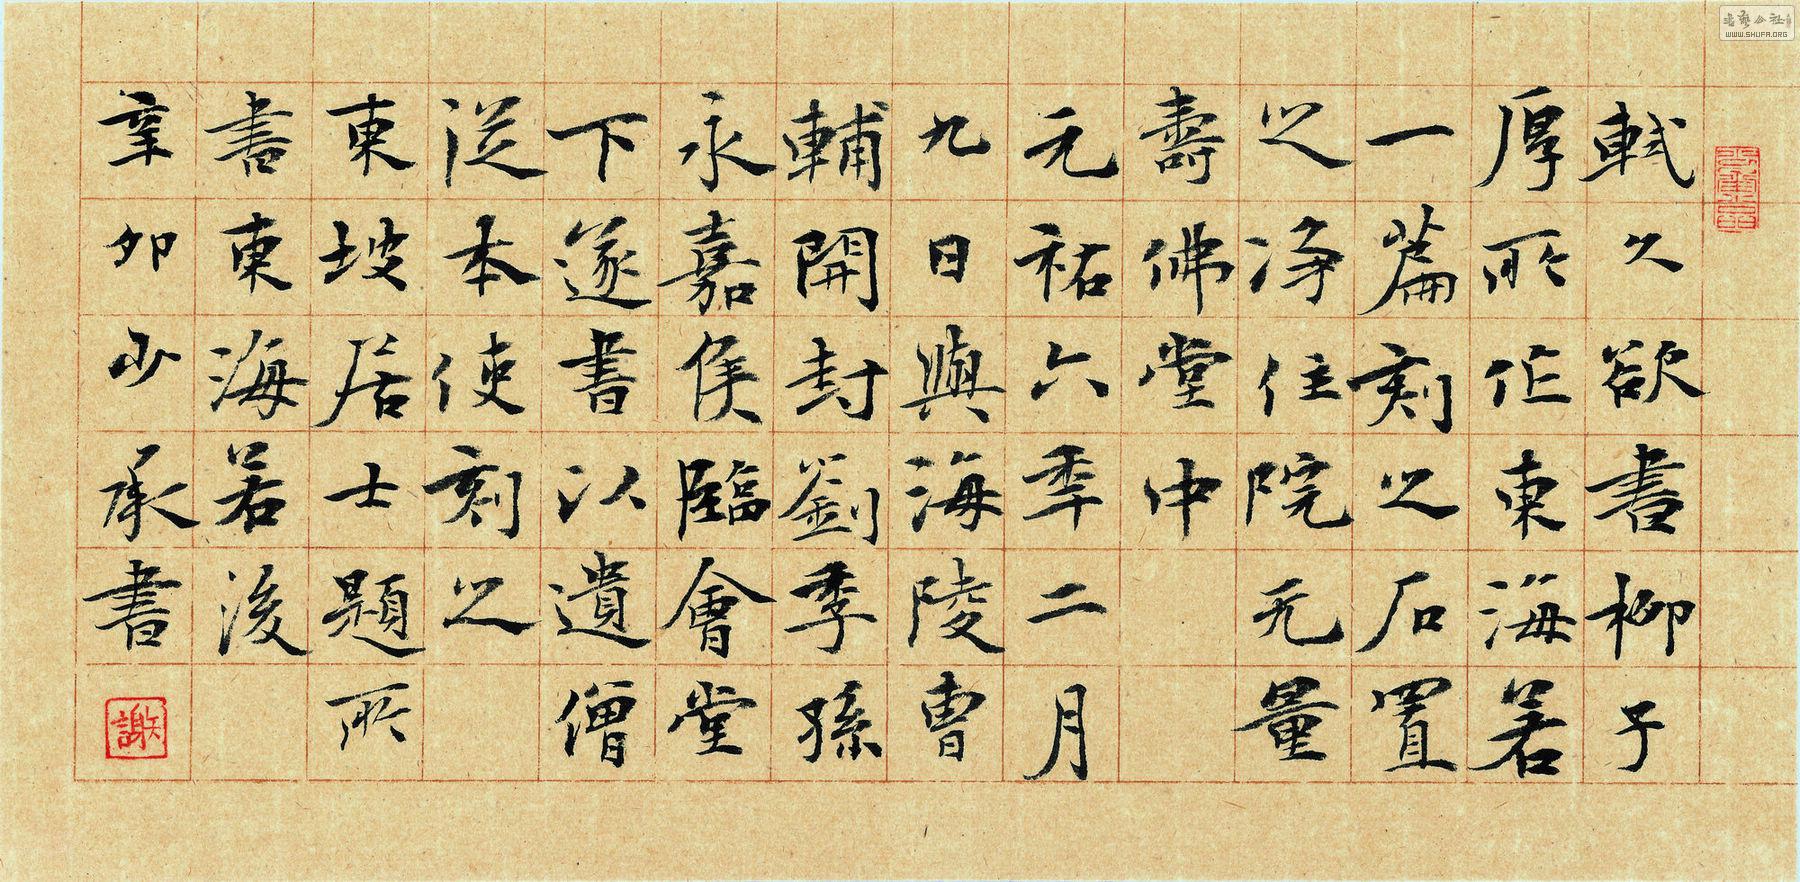 軾久欲書柳子
厚所作東海若
一篇刻之石置
之净住院无量
壽佛堂中
元祐六年二月
九日與海陵曹
輔開封劉季孫
永嘉侯臨會堂
下遂書以遺僧
從本使刻之
東坡居士題所
書東海若後
辛卯少承書
謝
書藝公社
WWW.SHUFA.ORG